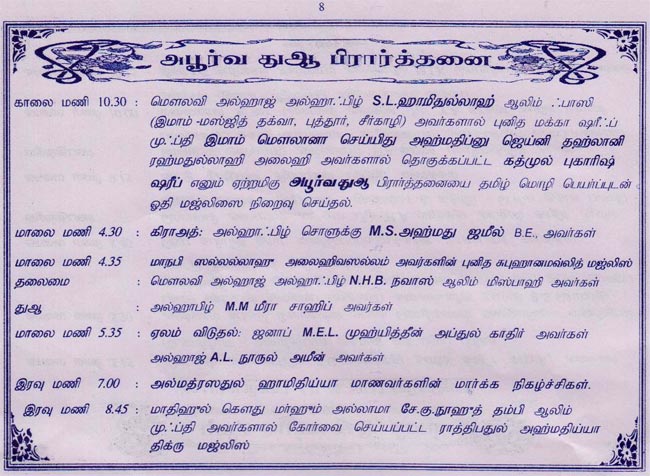 8
அபூர்வ துஆ பிரார்த்தனை
காலை மணி 10.30 : மௌலவி அல்ஹாஜ் அல்ஹாஃபிழ் S.L.ஹாமிதுல்லாஹ் ஆலிம் ஃபாஸி
(இமாம் -மஸ்ஜித் தக்வா, புத்தூர், சீர்காழி) அவர்களால் புனித மக்கா ஷரீஃப்
முஃப்தி இமாம் மௌலானா செய்யிது அஹ்மதிப்னு ஜெய்னி தஹ்லானி
ரஹ்மதுல்லாஹி அலைஹி அவர்களால் தொகுக்கப்பட்ட கத்முல் புகாரிஷ்
ஷரீப் எனும் ஏற்றமிகு அபூர்வதுஆ பிரார்த்தனையை தமிழ் மொழி பெயர்ப்புடன்
ஓதி மஜ்லிஸை நிறைவு செய்தல்.
மாலை மணி 4.30 : கிராஅத்: அல்ஹாஃபிழ் சொளுக்கு M.S.அஹ்மது ஜமீல் B.E., அவர்கள்
மாலை மணி 4.35 மாநபி ஸல்லல்லாஹு அலைஹிவஸல்லம் அவர்களின் புனித சுபுஹானமவ்லித் மஜ்லிஸ்
தலைமை : மௌலவி அல்ஹாஜ் அல்ஹாஃபிழ் N.H.B. நவாஸ் ஆலிம் மிஸ்பாஹி அவர்கள்
துஆ : அல்ஹாபிழ் M.M மீரா சாஹிப் அவர்கள்
மாலை மணி 5.35 : ஏலம் விடுதல்: ஜனாப் M.E.L. முஹ்யித்தீன் அப்துல் காதிர் அவர்கள்
அல்ஹாஜ் A.L. நூருல் அமீன் அவர்கள்
இரவு மணி 7.00 : அல்மத்ரஸதுல் ஹாமிதிய்யா மாணவர்களின் மார்க்க நிகழ்ச்சிகள்.
இரவு மணி 8.45 : மாதிஹுல் கௌது மர்ஹும் அல்லாமா சே.கு.நூஹுத் தம்பி ஆலிம்
முஃப்தி அவர்களால் கோர்வை செய்யப்பட்ட ராத்திபதுல் அஹ்மதிய்யா
திக்ரு மஜ்லிஸ்